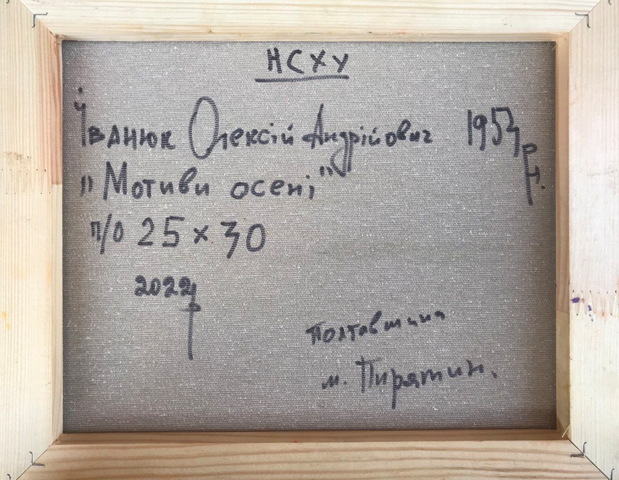 НСХУ
Іванюк Олексій Андрійович 1953 р.н.
"Мотиви осені"
п/о 25 × 30
2022р
Полтавщина
м. Пирятин.